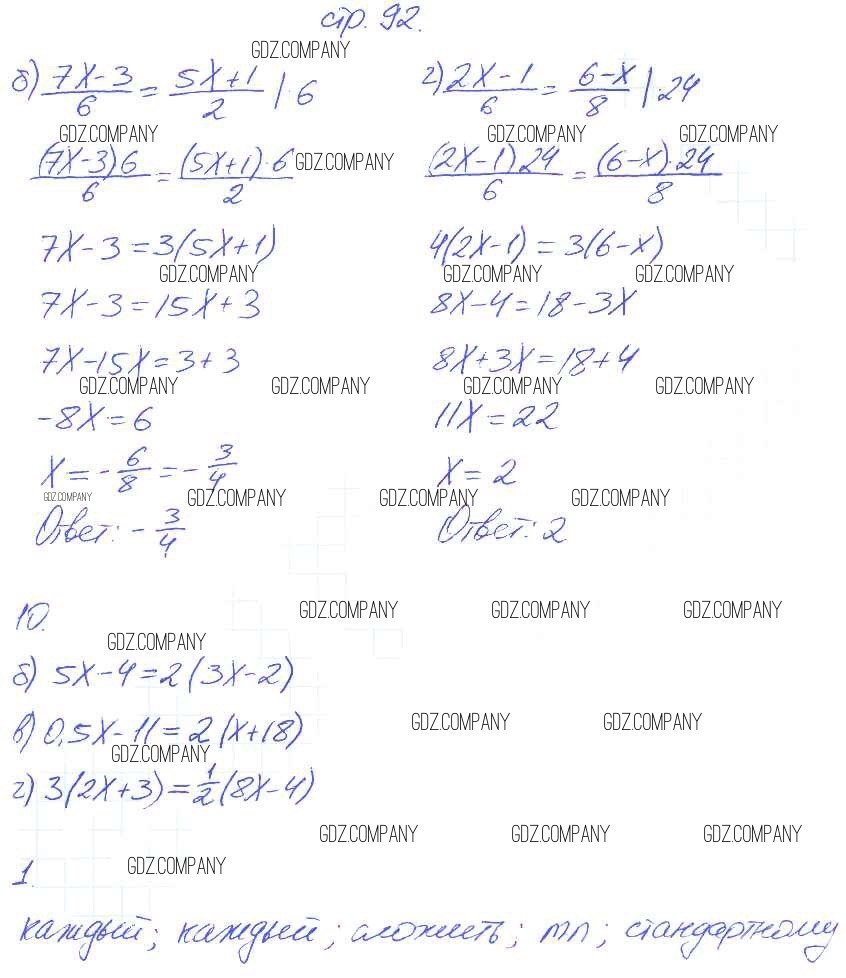 стр. 92.
GDZ.COMPANY
б) (7x-3)/6 = (5x+1)/2 | ·6
г) (2x-1)/6 = (6-x)/8 | ·24
GDZ.COMPANY GDZ.COMPANY GDZ.COMPANY
(7x-3)6/6 = (5x+1)·6/2
GDZ.COMPANY
(2x-1)24/6 = (6-x)·24/8
7x-3=3(5x+1)
4(2x-1)=3(6-x)
GDZ.COMPANY GDZ.COMPANY GDZ.COMPANY
7x-3=15x+3
8x-4=18-3x
7x-15x=3+3
8x+3x=18+4
GDZ.COMPANY GDZ.COMPANY GDZ.COMPANY GDZ.COMPANY
-8x=6
11x=22
x=-6/8=-3/4
x=2
GDZ.COMPANY GDZ.COMPANY GDZ.COMPANY GDZ.COMPANY
Ответ: -3/4
Ответ: 2
10.
GDZ.COMPANY GDZ.COMPANY GDZ.COMPANY
GDZ.COMPANY
б) 5x-4=2(3x-2)
GDZ.COMPANY GDZ.COMPANY
в) 0,5x-11=2(x+18)
GDZ.COMPANY
г) 3(2x+3)=1/2(8x-4)
GDZ.COMPANY GDZ.COMPANY GDZ.COMPANY
1.
GDZ.COMPANY
каждый; каждый; сложить; mn; стандартному